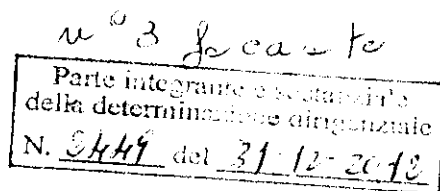 n° 3 facciate
Parte integrante e sostanziale
della determinazione dirigenziale
N. 2449 del 31-12-2012